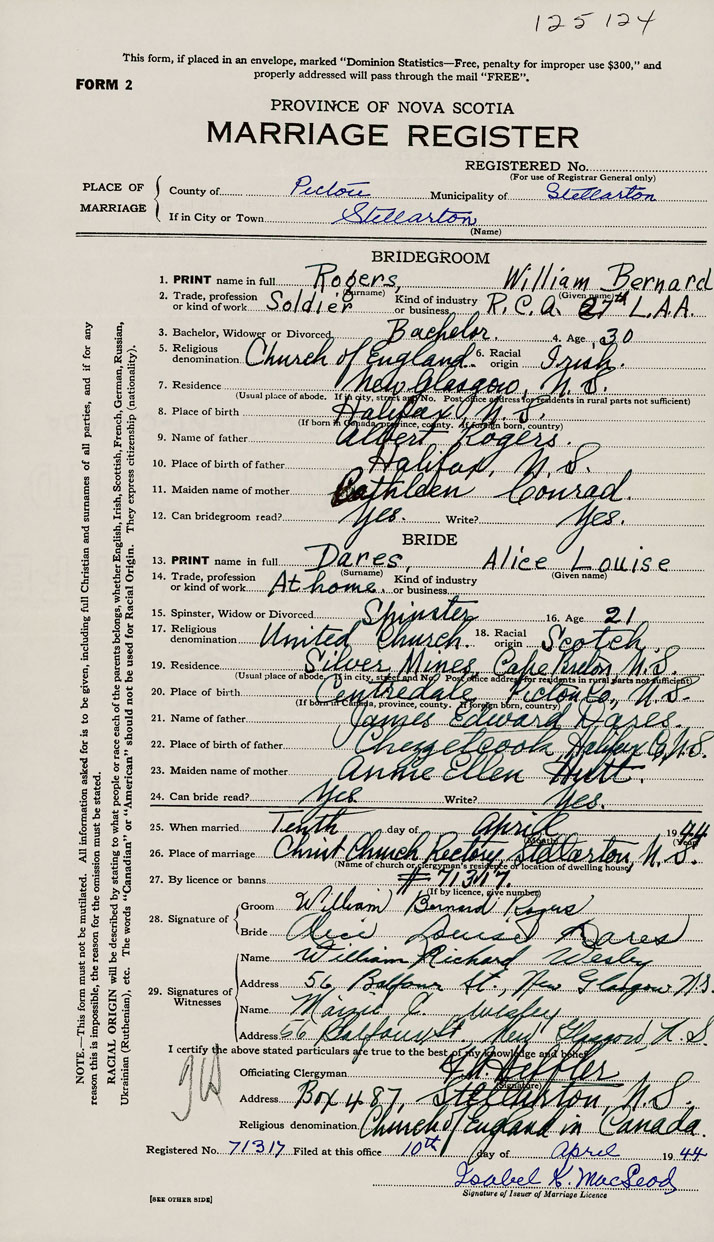 125124
This form, if placed in an envelope, marked "Dominion Statistics—Free, penalty for improper use $300," and
properly addressed will pass through the mail "FREE".
FORM 2
PROVINCE OF NOVA SCOTIA
MARRIAGE REGISTER
REGISTERED No.
(For use of Registrar General only)
PLACE OF MARRIAGE
County of Pictou Municipality of Stellarton
If in City or Town Stellarton
(Name)
BRIDEGROOM
1. PRINT name in full Rogers, William Bernard
(Surname) (Given name)
2. Trade, profession or kind of work Soldier Kind of industry or business R.C.A. 27th L.A.A.
3. Bachelor, Widower or Divorced Bachelor. 4. Age 30
5. Religious denomination Church of England. 6. Racial origin Irish.
7. Residence New Glasgow, N.S.
(Usual place of abode. If in city, street and No. Post office address for residents in rural parts not sufficient)
8. Place of birth Halifax, N.S.
(If born in Canada, province, county. If foreign born, country)
9. Name of father Albert Rogers.
10. Place of birth of father Halifax, N.S.
11. Maiden name of mother Cathleen Conrad.
12. Can bridegroom read? Yes. Write? Yes.
BRIDE
13. PRINT name in full Dares, Alice Louise
(Surname) (Given name)
14. Trade, profession or kind of work At home. Kind of industry or business
15. Spinster, Widow or Divorced Spinster 16. Age 21
17. Religious denomination United Church. 18. Racial origin Scotch.
19. Residence Silver Mines, Cape Breton, N.S.
(Usual place of abode. If in city, street and No. Post office address for residents in rural parts not sufficient)
20. Place of birth Centredale, Pictou Co., N.S.
(If born in Canada, province, county. If foreign born, country)
21. Name of father James Edward Dares.
22. Place of birth of father Chezzetcook, Halifax Co, N.S.
23. Maiden name of mother Annie Ellen Hutt.
24. Can bride read? Yes. Write? Yes.
25. When married Tenth day of April 1944
(Month) (Year)
26. Place of marriage Christ Church Rectory, Stellarton, N.S.
(Name of church or clergyman's residence or location of dwelling house)
27. By licence or banns # 71317.
(If by licence, give number)
28. Signature of
Groom William Bernard Rogers
Bride Alice Louise Dares
29. Signatures of Witnesses
Name William Richard Wesley
Address 56, Balfour St., New Glasgow N.S.
Name Maizie C. Wesley
Address 56 Balfour St New Glasgow N.S.
I certify the above stated particulars are true to the best of my knowledge and belief
Officiating Clergyman
(Signature)
Address Box 487, Stellarton, N.S.
Religious denomination Church of England in Canada.
Registered No. 71317 Filed at this office 10th day of April 1944
Isabel K. MacLeod
Signature of Issuer of Marriage Licence
[SEE OTHER SIDE]
NOTE.—This form must not be mutilated. All information asked for is to be given, including full Christian and surnames of all parties, and if for any
reason this is impossible, the reason for the omission must be stated.
RACIAL ORIGIN will be described by stating to what people or race each of the parents belongs, whether English, Irish, Scottish, French, German, Russian,
Ukrainian (Ruthenian), etc. The words "Canadian" or "American" should not be used for Racial Origin. They express citizenship (nationality).